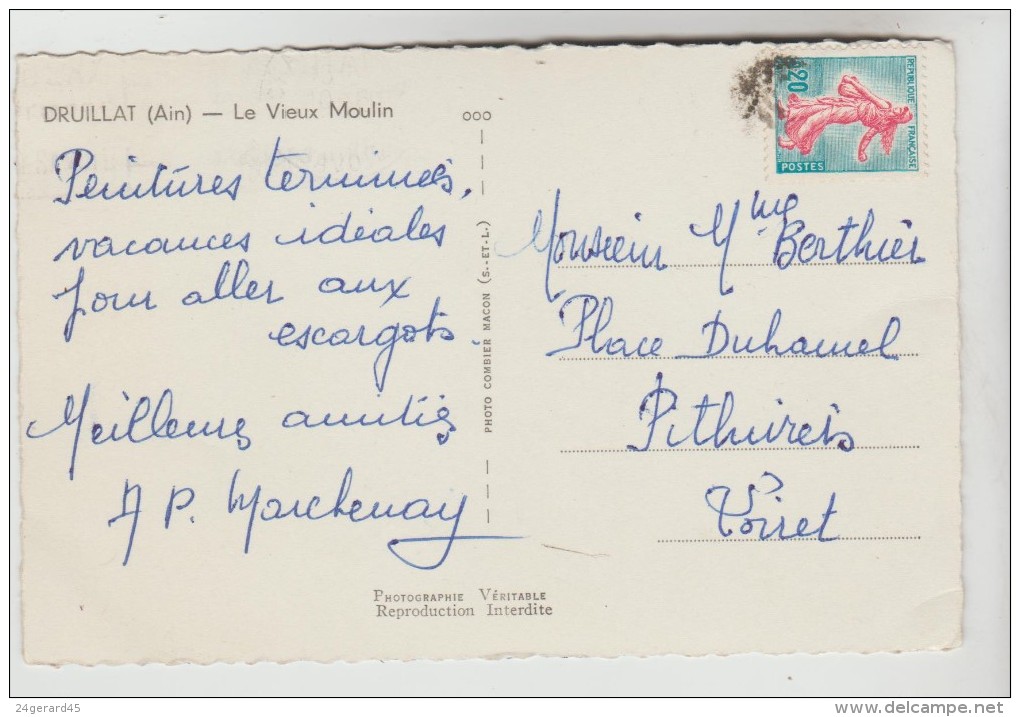 DRUILLAT (Ain) — Le Vieux Moulin
ooo
Peintures terminées,
vacances idéales
pour aller aux
escargots.
Meilleures amitiés
A P. Marchenay
PHOTO COMBIER MACON (S.-ET-L.)
0,20
REPUBLIQUE FRANCAISE
POSTES
Monsieur Mme Berthier
Place Duhamel
Pithiviers
Loiret
PHOTOGRAPHIE VÉRITABLE
Reproduction Interdite
24gerard45
www.delcampe.net